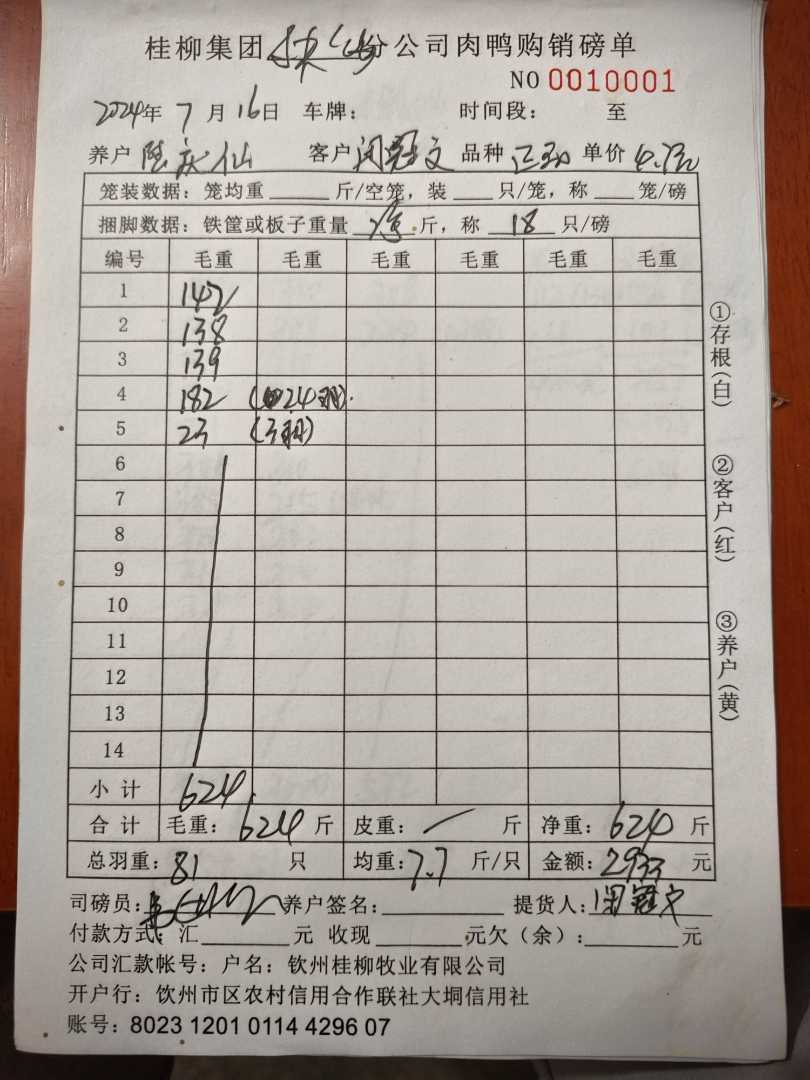 桂柳集团 分公司肉鸭购销磅单
NO 0010001
2024年 7 月 16日 车牌: 时间段: 至
养户 陆庆仙 客户 闵冠文 品种 单价
笼装数据: 笼均重 斤/空笼, 装 只/笼, 称 笼/磅
捆脚数据: 铁筐或板子重量 斤, 称 18 只/磅
编号 毛重 毛重 毛重 毛重 毛重 毛重
1 142
2 138
3 139
4 182 (24羽).
5 23 (3羽)
6
7
8
9
10
11
12
13
14
小 计 624
合 计 毛重: 624 斤 皮重: / 斤 净重: 624 斤
总羽重: 81 只 均重: 7.7 斤/只 金额: 2933 元
司磅员: 养户签名: 提货人: 闵冠文
付款方式: 汇 元 收现 元欠(余): 元
公司汇款帐号: 户名: 钦州桂柳牧业有限公司
开户行: 钦州市区农村信用合作联社大垌信用社
账号: 8023 1201 0114 4296 07
①存根(白)
②客户(红)
③养户(黄)